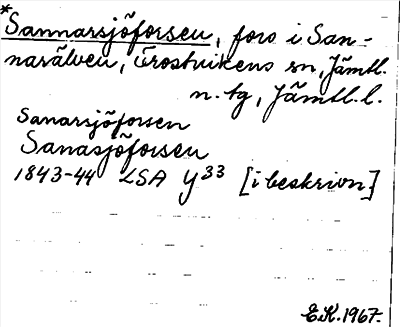 *Sannarsjöforsen, fors i San-
narälven, Föstvikens sn, Jämtl.
n. tg, Jämtl. l.
Sanarsjöforsen
Sanasjöforsen
1843-44 LSA Y33 [i beskrivn]
E.K. 1967.